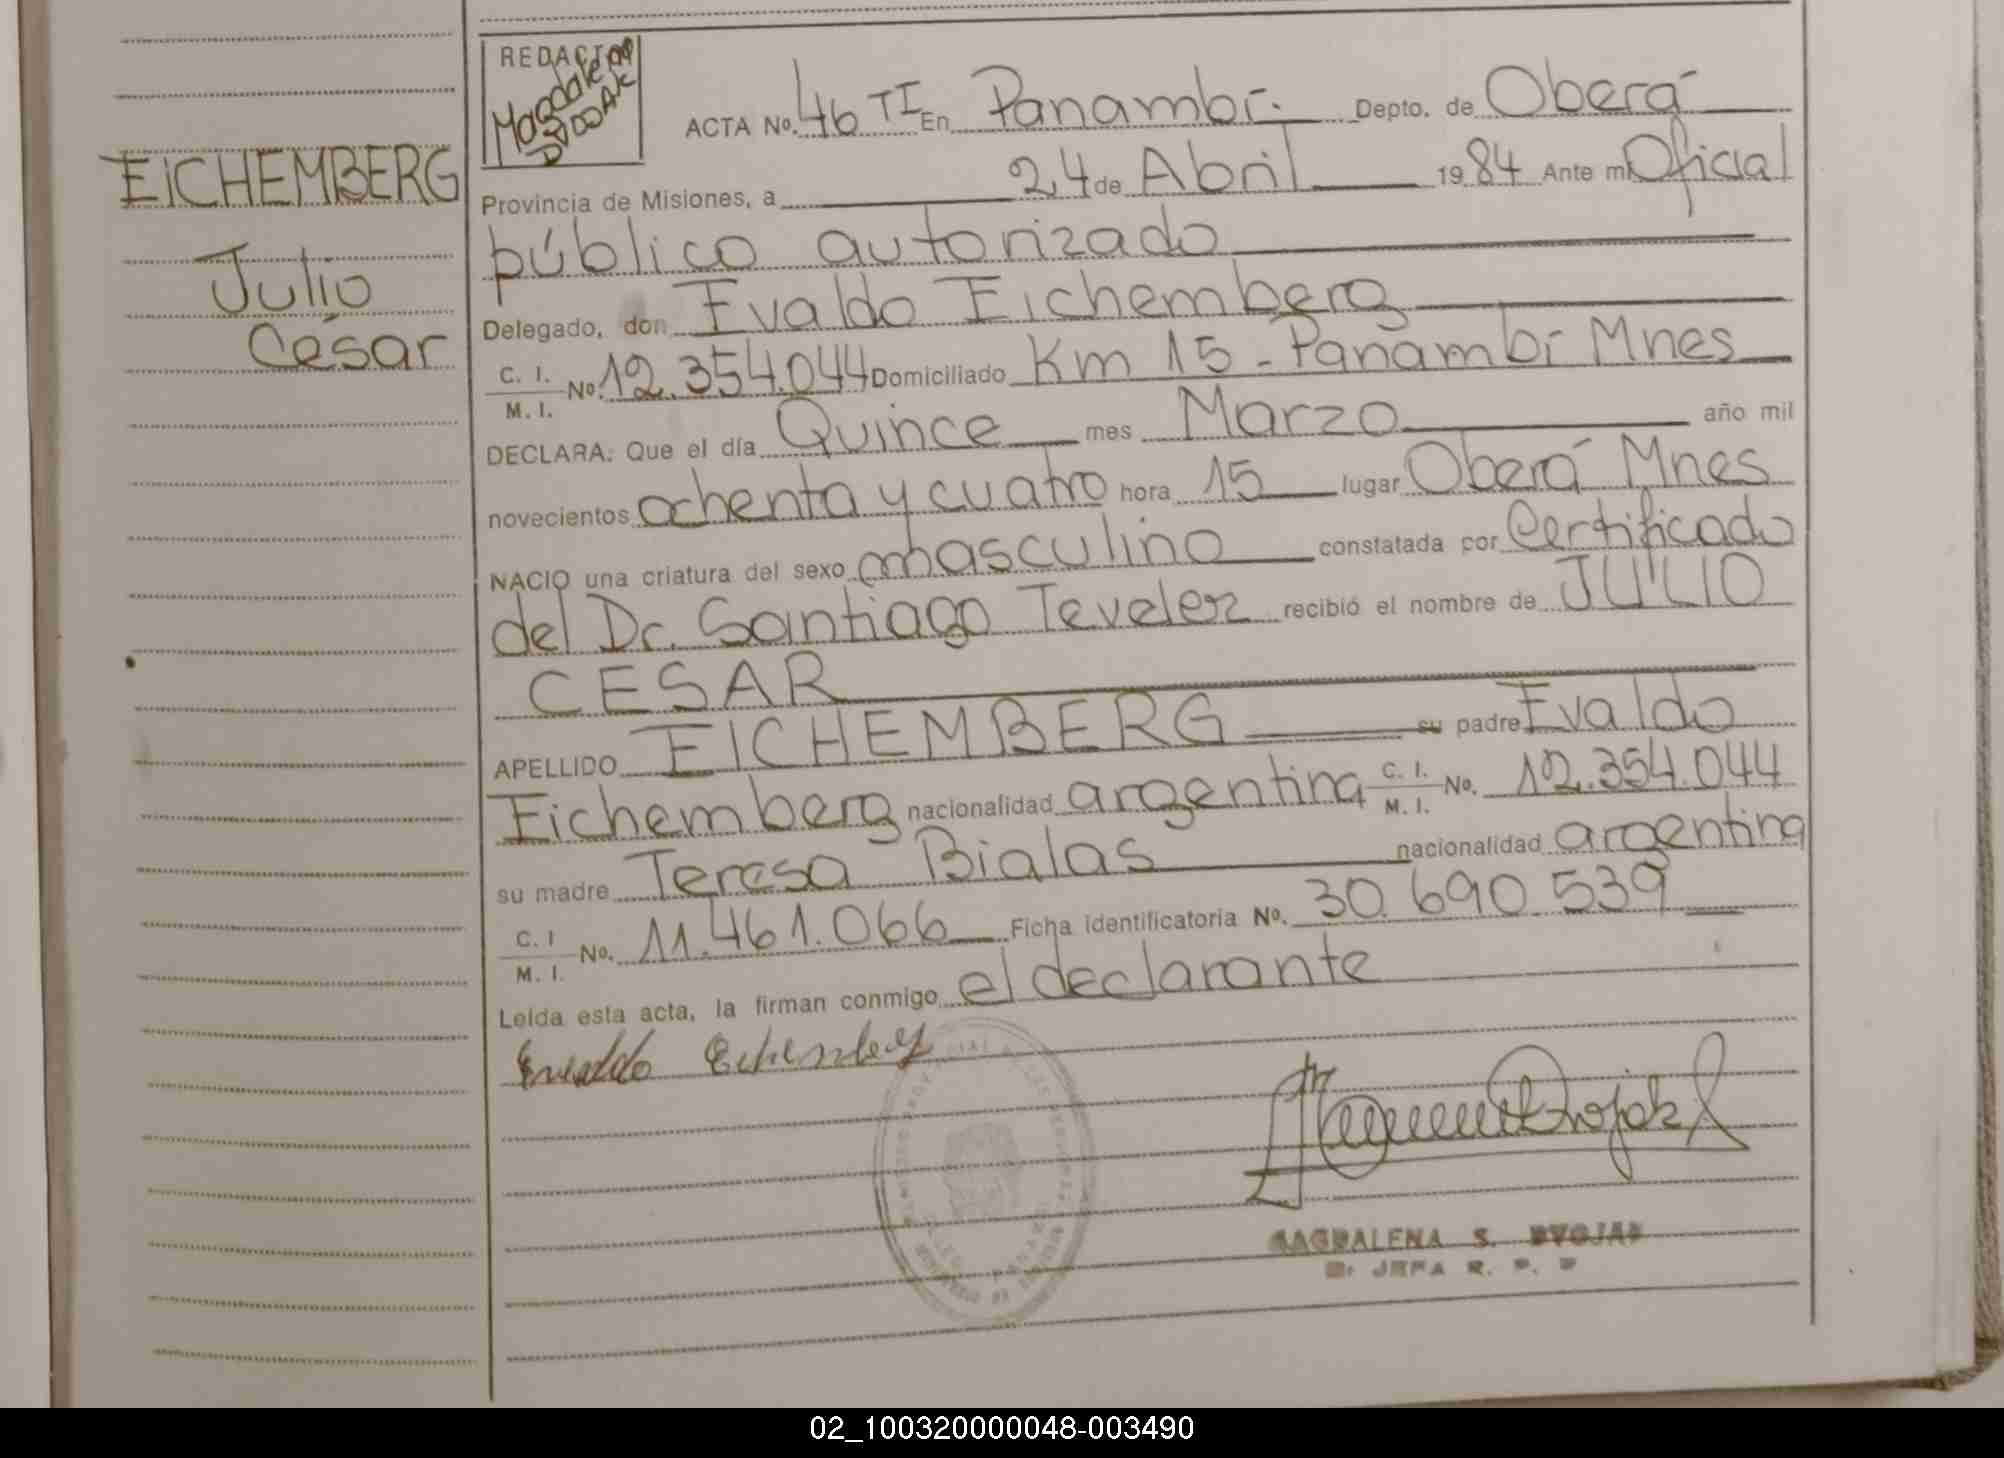 EICHEMBERG
Julio
César
REDACTOR
Magdalena
ACTA No. 46 TI En Panambí. Depto. de Oberá
Provincia de Misiones, a 24 de Abril 1984 Ante mí Oficial
público autorizado
Delegado, don Evaldo Eichemberg
C. I.
M. I. No. 12.354.044 Domiciliado Km 15 - Panambí Mnes
DECLARA: Que el día Quince mes Marzo año mil
novecientos ochenta y cuatro hora 15 lugar Oberá Mnes
NACIO una criatura del sexo masculino constatada por Certificado
del Dr. Santiago Tevelez recibió el nombre de JULIO
CESAR
APELLIDO EICHEMBERG su padre Evaldo
Eichemberg nacionalidad argentina C. I. M. I. No. 12.354.044
su madre Teresa Bialas nacionalidad argentina
C. I M. I. No. 11.461.066 Ficha identificatoria No. 30.690.539
Leída esta acta, la firman conmigo el declarante
MAGDALENA S.
JEFA R. P. P
02_100320000048-003490